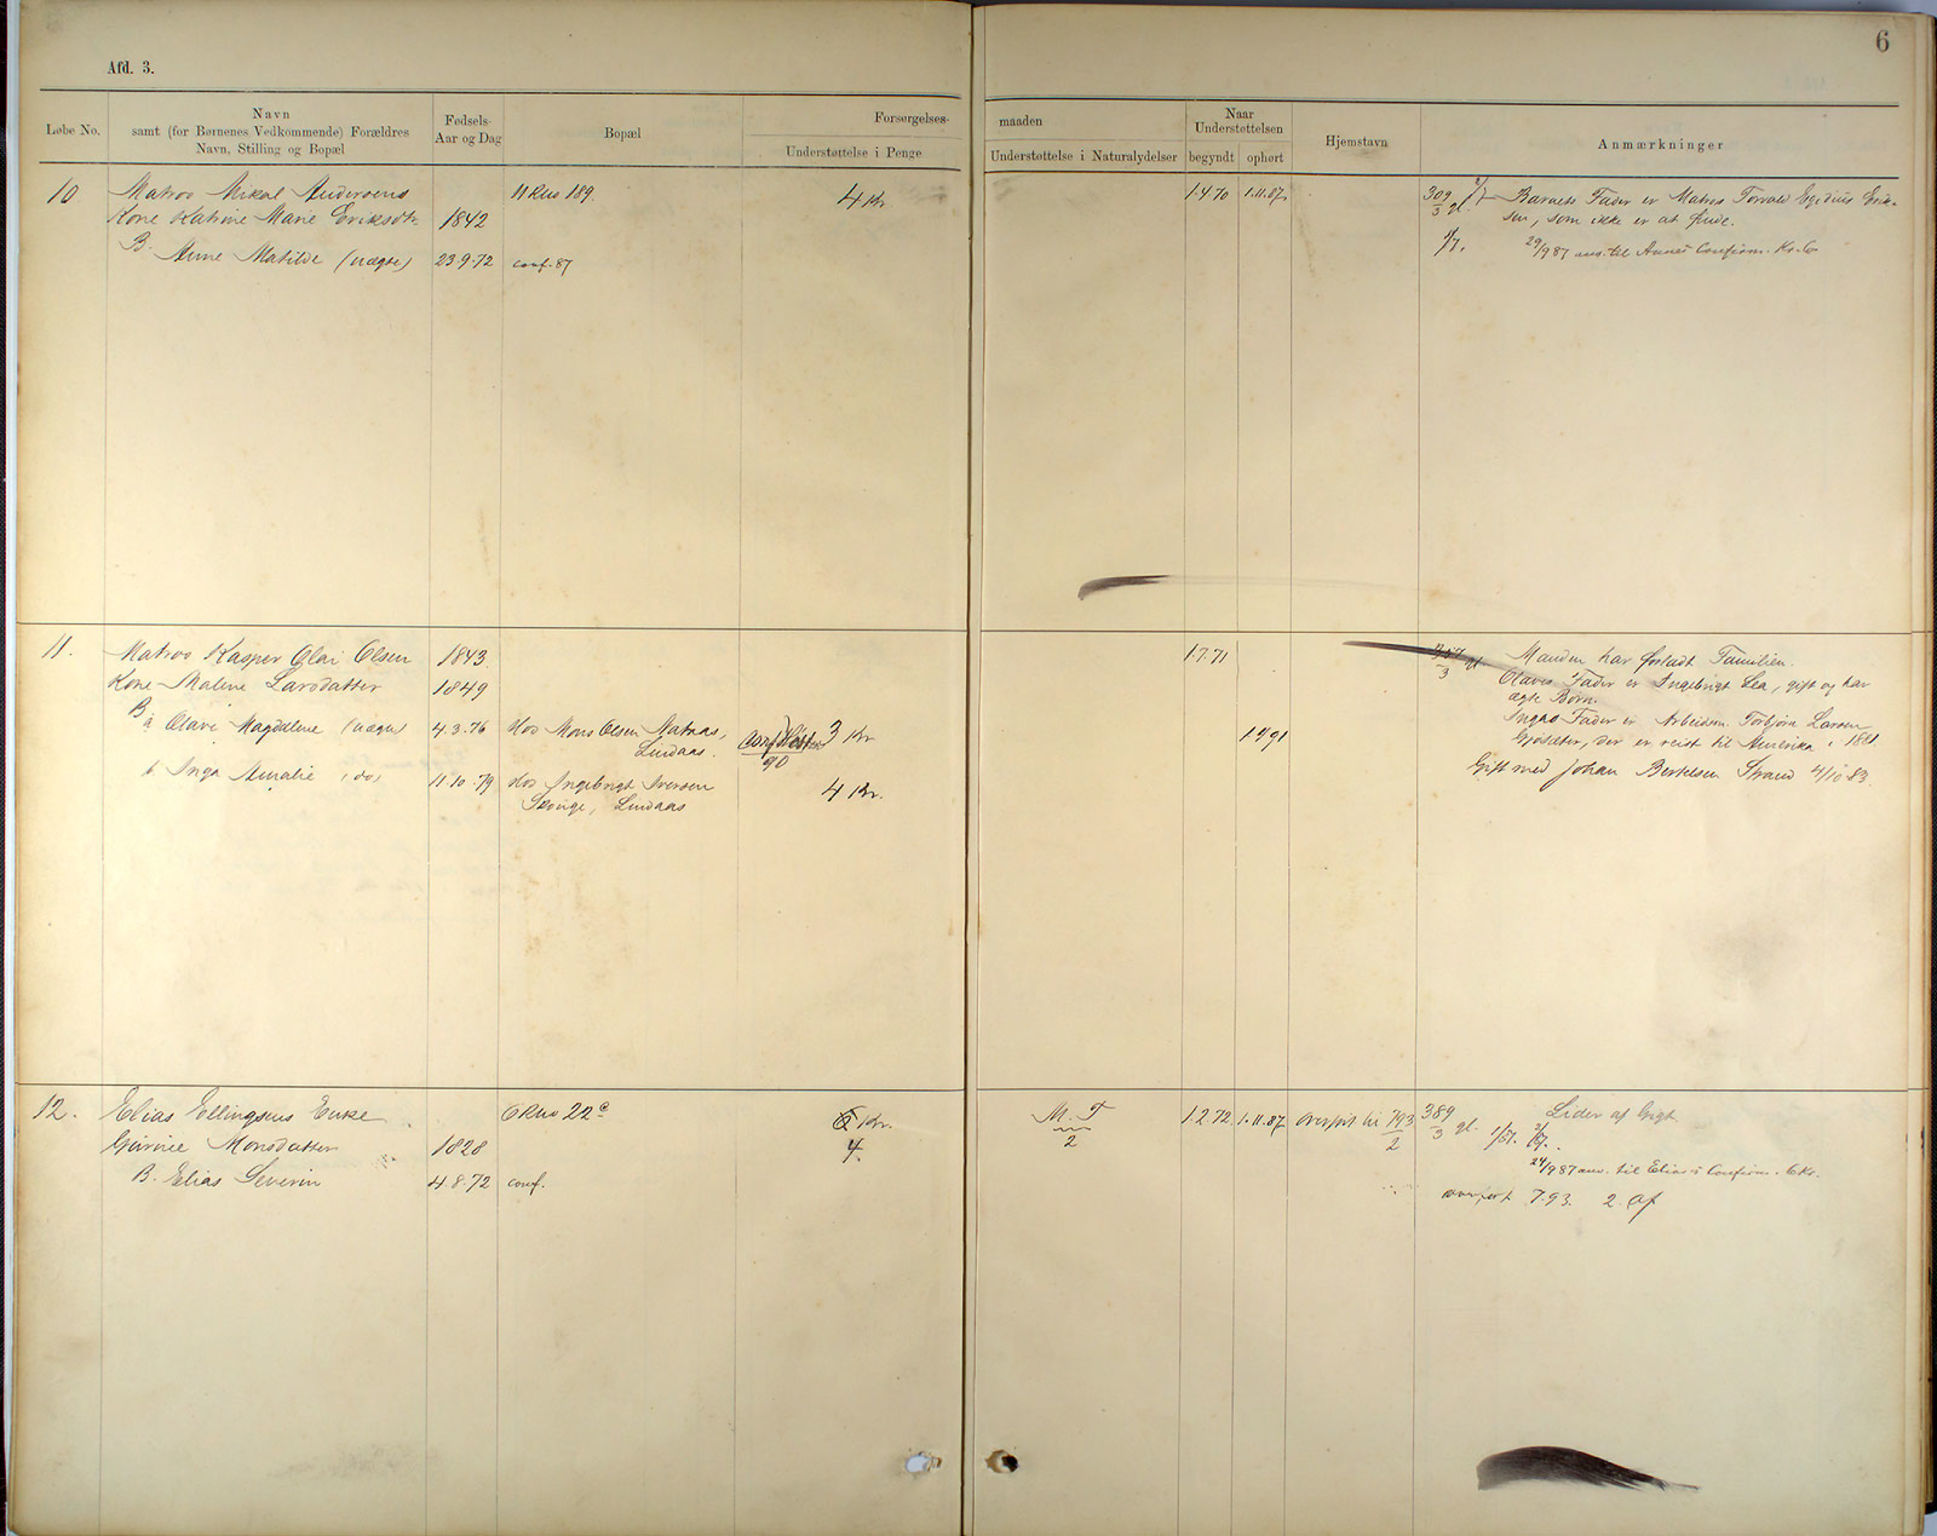 6
Afd. 3.
Løbe No.
Navn
samt (for Børnenes Vedkommende) Forældres
Navn, Stilling og Bopæl
Fødsels-
Aar og Dag
Bopæl
Forsørgelses-
Understøttelse i Penge
maaden
Understøttelse i Naturalydelser
Naar
Understøttelsen
begyndt
ophørt
Hjemstavn
Anmærkninger
10
Matros Mikal Andersens
Kone Katrine Marie Eriksdtr.
1842
B. Anne Matilde (uægte)
23.9.72
conf. 87
11 Rno 189.
4 Kr.
1.4.70
1.11.87
309/3 gl.
Barnets Fader er Matros Torvald Egidius Erik-
sen, som ikke er at finde.
1/7.
29/9 87 anv. til Annes Confirm. Kr. 6
11.
Matros Kasper Olai Olsen
1843.
Kone Malene Larsdatter
1849
B
a Olave Magdalene (uægte)
4.3.76
Hos Mons Olsen Natraas,
Lindaas.
conf Høsten
90
3 Kr
b Inga Amalie (do)
11.10.79
Hos Ingebrigt Iversen
Skouge, Lindaas
4 Kr.
1.7.71
3 gl.
Manden har forladt Familien.
Olaves Fader er Ingebrigt Lea, gift og har
ægte Børn.
Ingas Fader er Arbeidsm. Torbjørn Larsen
Gjøsæter, der er reist til Amerika i 1881.
Gift med Johan Bertelsen Strand 4/10 83.
12.
Elias Ellingsens Enke
Gurine Monsdatter
1828
B. Elias Severin
4.8.72
conf.
6 Rno 22c
6 Kr.
4
M. T
2
1.2.72
1.11.87
overført til 793/2
389/3 gl.
Lider af Gigt
24/9 87 anv. til Elias's Confirm. 6 Kr.
overført 7.93. 2. Af